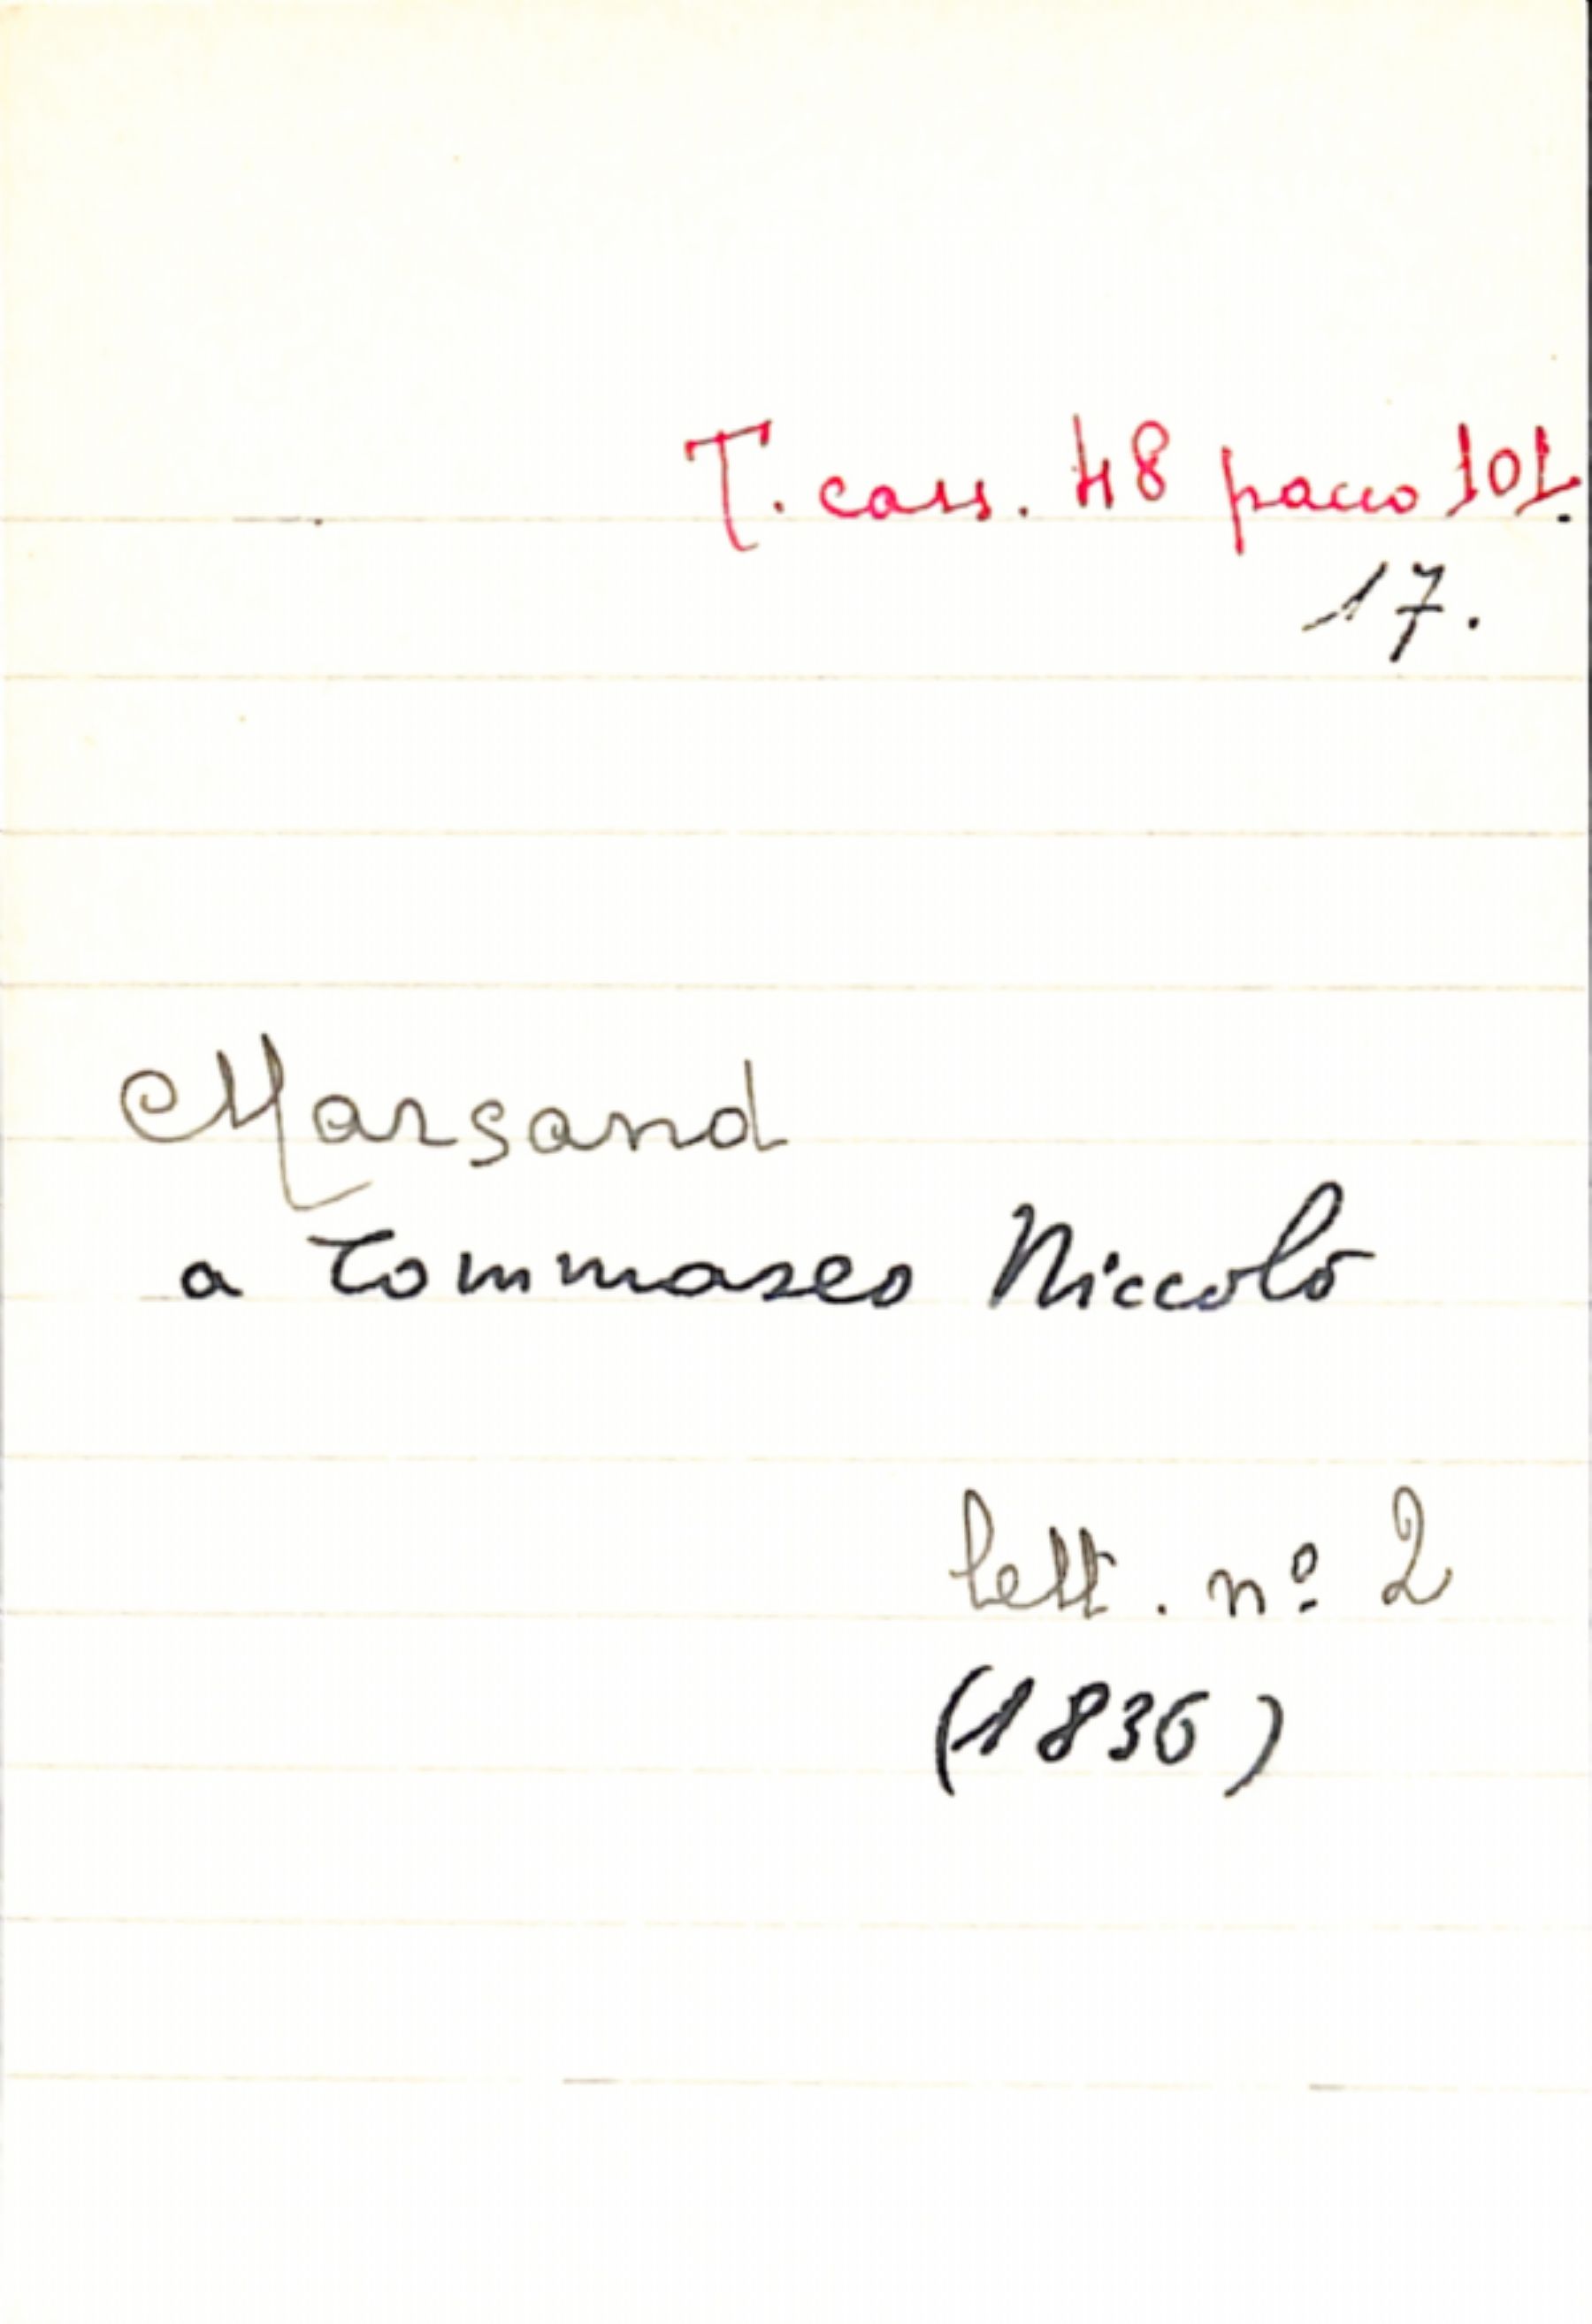 T. cass. 48 pacco 101.
17.
Marsand
a Tommaseo Niccolò
lett. nº 2
(1836)